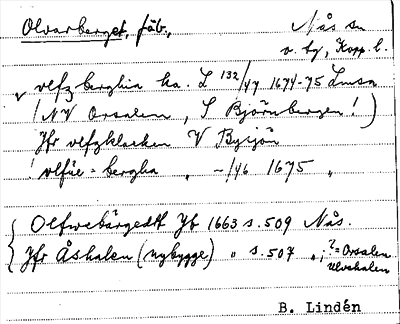 Olvarberget, fäb., Nås sn
v. by, Kopp. l.
v olfzberghia ka. L 132/47 1674-75 Lmsa
(NV Orsalen, S Björnbergen!)
Jfr olefzklacken V Bysjön
! olfûe = bergha " -/46 1675 "
{ Olfwebärgedt Jb 1663 s. 509 Nås.
Jfr Åshalen (nybygge) " s. 507 " ; ?= Orsalen
Ulvshalen
B. Lindén